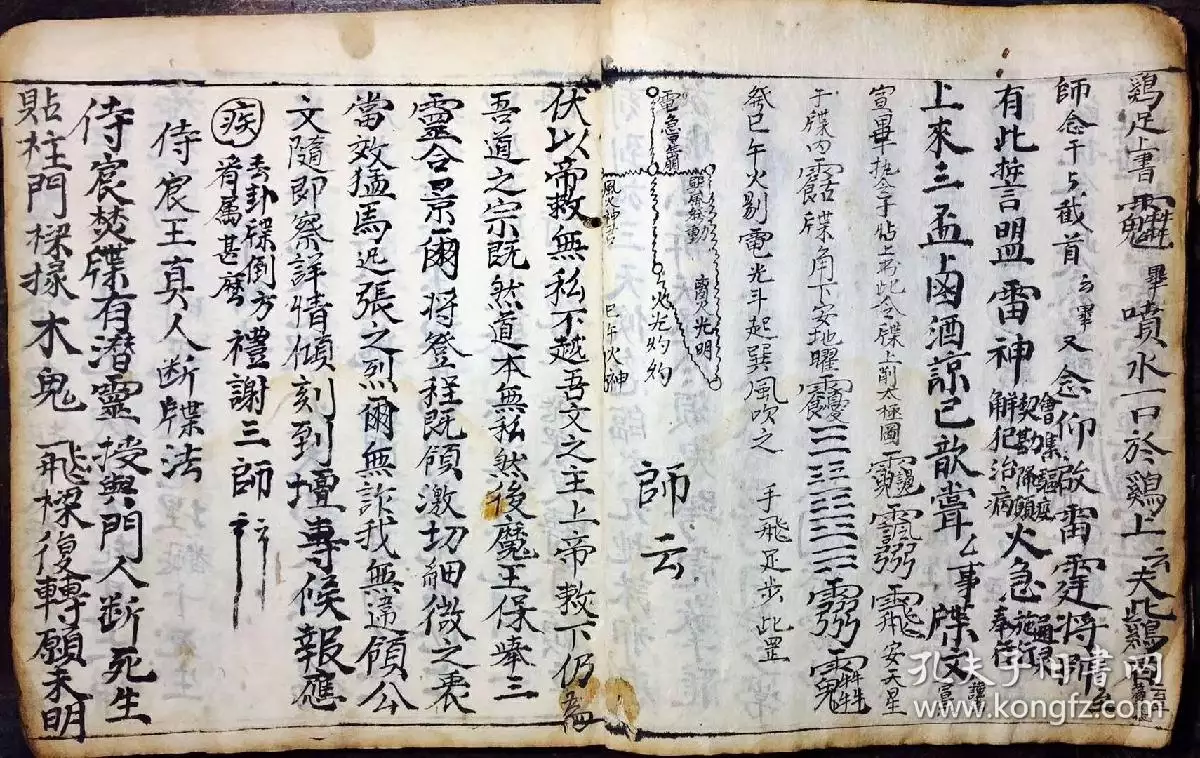 鷄足上書 畢噴水一口於鷄上云夫此鷄
師念干与截首云畢又念仰啟雷霆將帥
有此誓言盟雷神解犯治病火急奉行
上來三盃上鹵酒諒已歆嘗厶事牒文
宣畢 上書此令牒上削太極圖 安天星
于牒內 牒角下安地曜
發巳午火剔電光斗起巽風吹之 手飛足步此罡
火光灼灼
巳午火神
師云
伏以帝敕無私不越吾文之主上帝敕下仍
吾道之宗既然道本無私然後魔王保舉三
靈合景爾將登程既領激切細微之衷
當效猛馬迅張之烈爾無詐我無違領公
文隨即察詳情傾刻到壇專候報應
疾 丟卦牒倒方 眷屬甚麽 禮謝三師
侍宸王真人断牒法
侍宸焚牒有潜靈授與門人断死生
貼柱門樑掾木鬼飛樑復轉願未明
孔夫子旧书网
www.kongfz.com